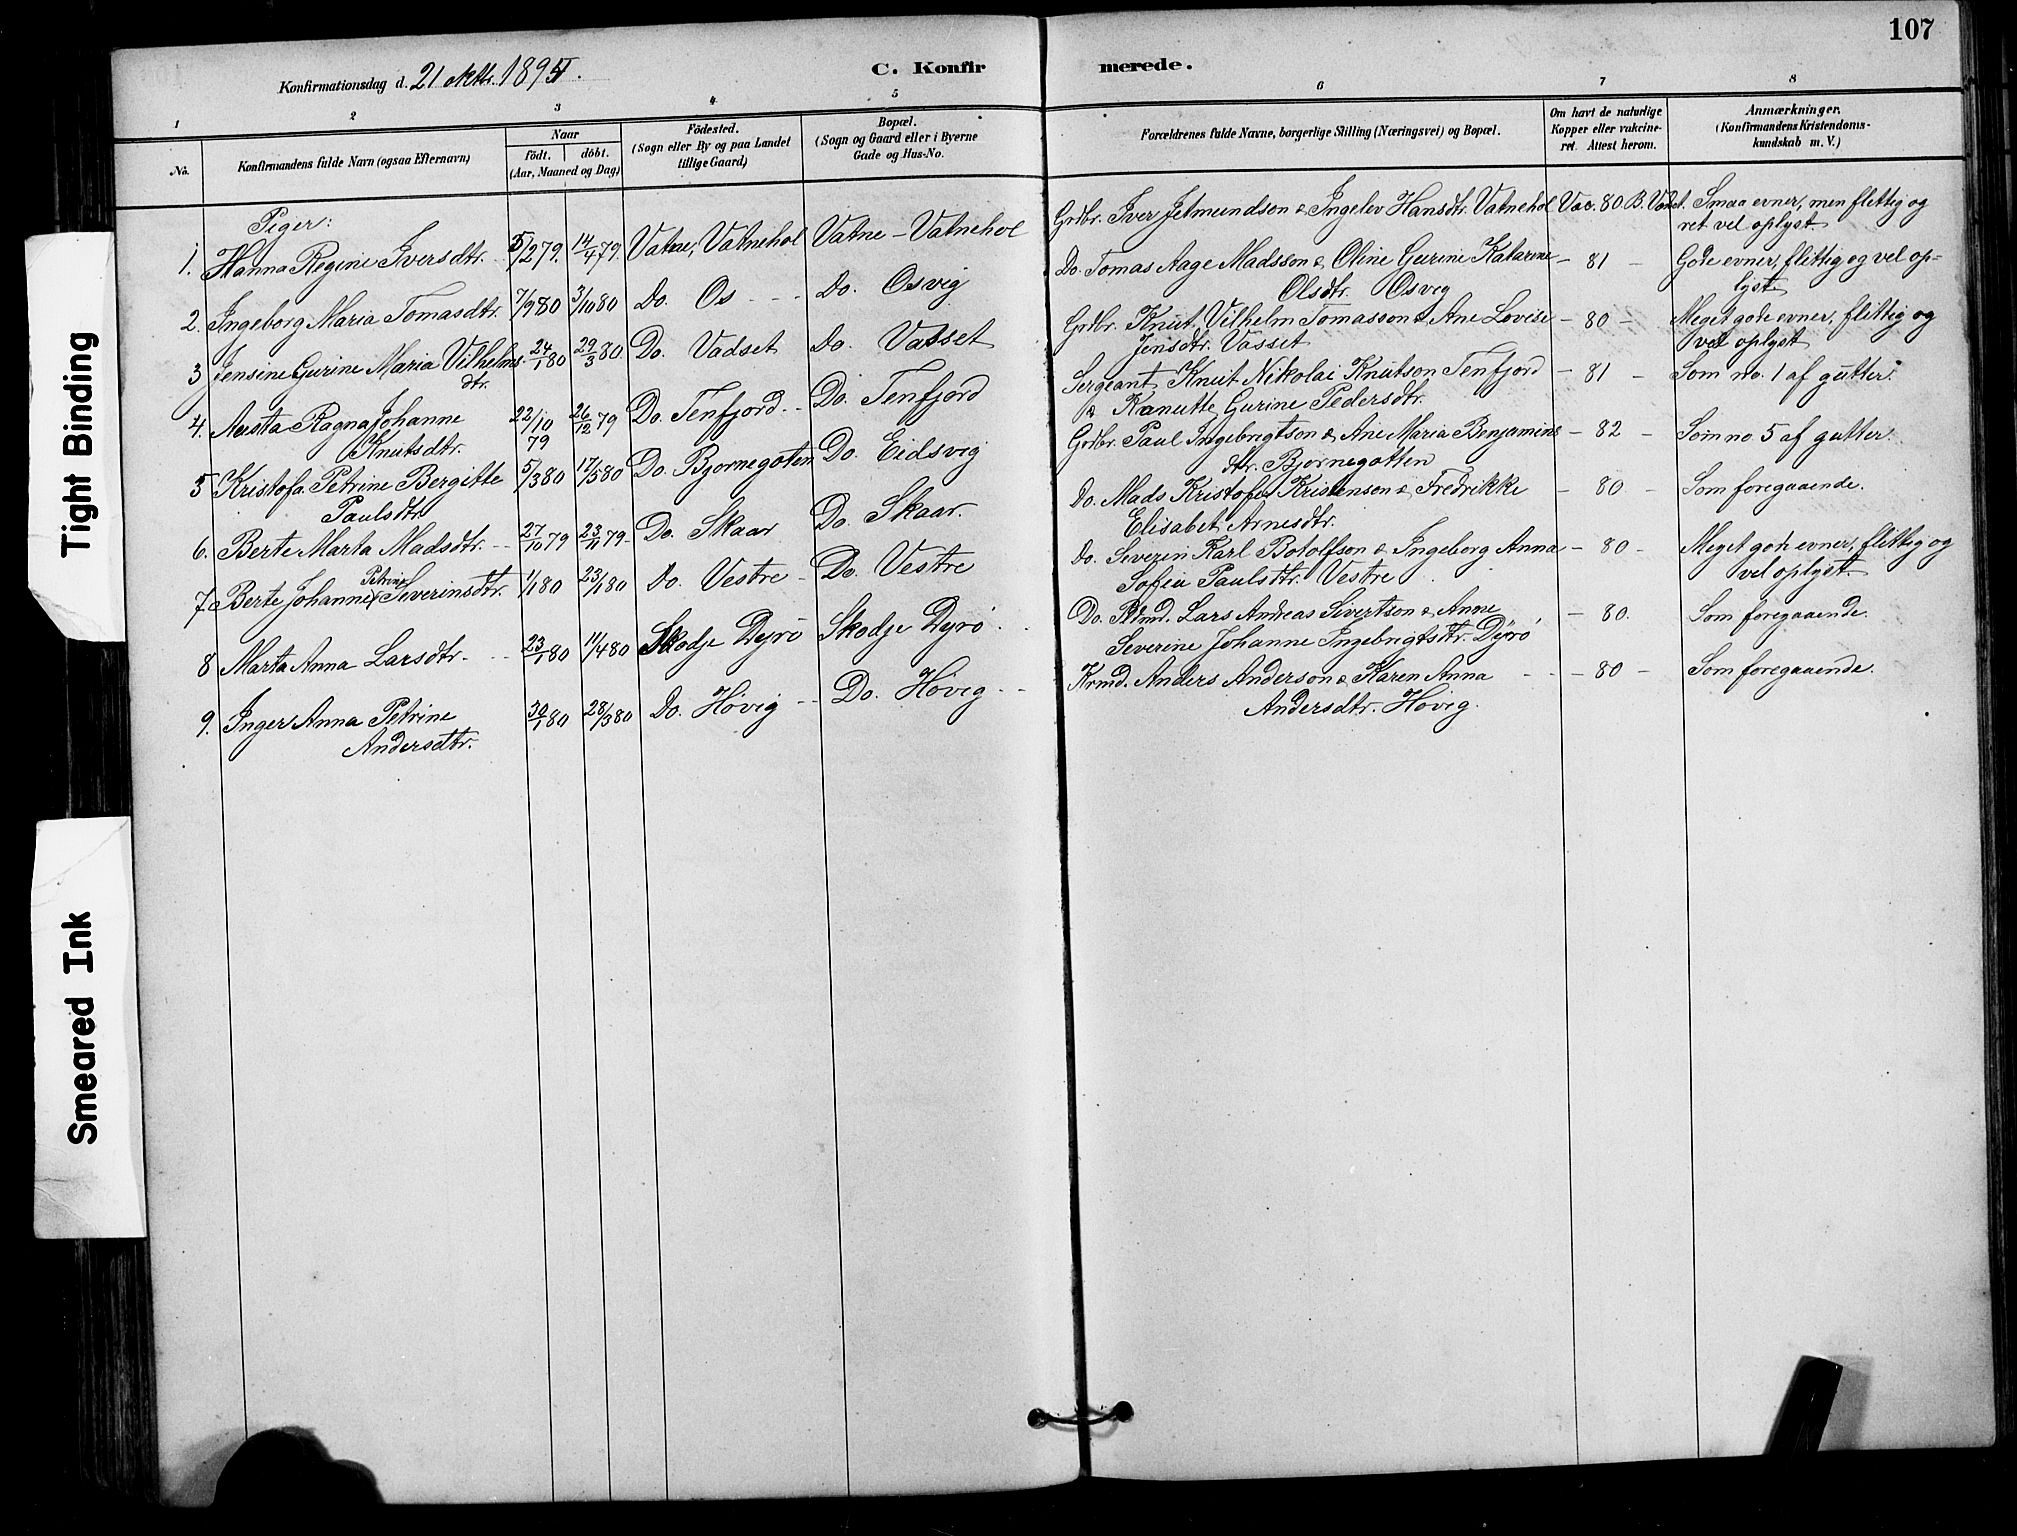 107
Konfirmationsdag d. 21 oktbr. 1894.
C. Konfirmerede.
1 2 3 4 5 6 7 8
No.
Konfirmandens fulde Navn (ogsaa Efternavn)
Naar
födt. döbt.
(Aar, Maaned og Dag)
Födested.
(Sogn eller By og paa Landet
tillige Gaard)
Bopæl.
(Sogn og Gaard eller i Byerne
Gade og Hus-No.
Forældrenes fulde Navne, borgerlige Stilling (Næringsvei) og Bopæl.
Om havt de naturlige
Kopper eller vakcine-
ret. Attest herom.
Anmærkninger.
(Konfirmandens Kristendoms-
kundskab m. V.)
Piger:
1. Hanna Regine Iversdtr. 5/2 79. 14/4 79. Vatne, Vatnehol Vatne - Vatnehol Grdbr. Iver Jetmundson & Ingelev Hansdtr. Vatnehol Vac. 80. B. Smaa evner, men flittig og
ret vel oplyst
2. Ingeborg Maria Tomasdtr. 7/9 80 3/10 80 Do. Os Do. Osvig Do. Tomas Aage Madsson & Oline Gurine Katarine - 81 - Gode evner, flittig og vel op-
Olsdtr. Osvig lyst
3 Jensine Gurine Maria Vilhelms- 24/1 80 29/3 80. Do. Vadset Do. Vasset Grdbr. Knut Vilhelm Tomasson & Ane Lovise - 80 - Meget gode evner, flittig og
dtr. Jensdtr. Vasset vel oplyst
4. Austa Ragna Johanne 22/10 79 26/12 79 Do. Tenfjord Do. Tenfjord Sergeant Knut Nikolai Knutson Tenfjord - 81 - Som no. 1 af gutter.
Knutsdtr. & Kanutte Gurine Pedersdtr.
5 Kristofa Petrine Bergitte 5/3 80 17/5 80 Do. Bjornegoten Do. Eidsvig Grdbr. Paul Ingebrigtson & Ane Maria Benjamins - 82 - Som no 5 af gutter.
Paulsdtr. dtr. Bjornegotten
6. Berte Marta Madsdtr. 27/10 79 23/11 79 Do. Skaar Do. Skaar. Do. Mads Kristofer Kristenson & Fredrikke - 80. - Som foregaaende.
Elisabet Arnesdtr.
7. Berte Johanne Petrine Severinsdtr. 1/1 80 23/1 80 Do. Vestre Do. Vestre Do. Severin Karl Botolfson & Ingeborg Anna - 80 - Meget gode evner, flittig og
Sofia Paulsdtr. Vestre vel oplyst.
8 Marta Anna Larsdtr. 23/1 80 11/4 80 Skodje Dyrö Skodje Dyrö Do. Lars Andreas Sivertson & Anne - 80. Som foregaaende.
Severine Johanne Ingebrigtsdtr. Dyrö
9. Inger Anna Petrine 30/1 80 28/3 80 Do. Hövig Do. Hövig Krmd. Anders Anderson & Karen Anna - 80 - Som foregaaende.
Andersdtr. Andersdtr. Hövig.
Tight Binding
Smeared Ink